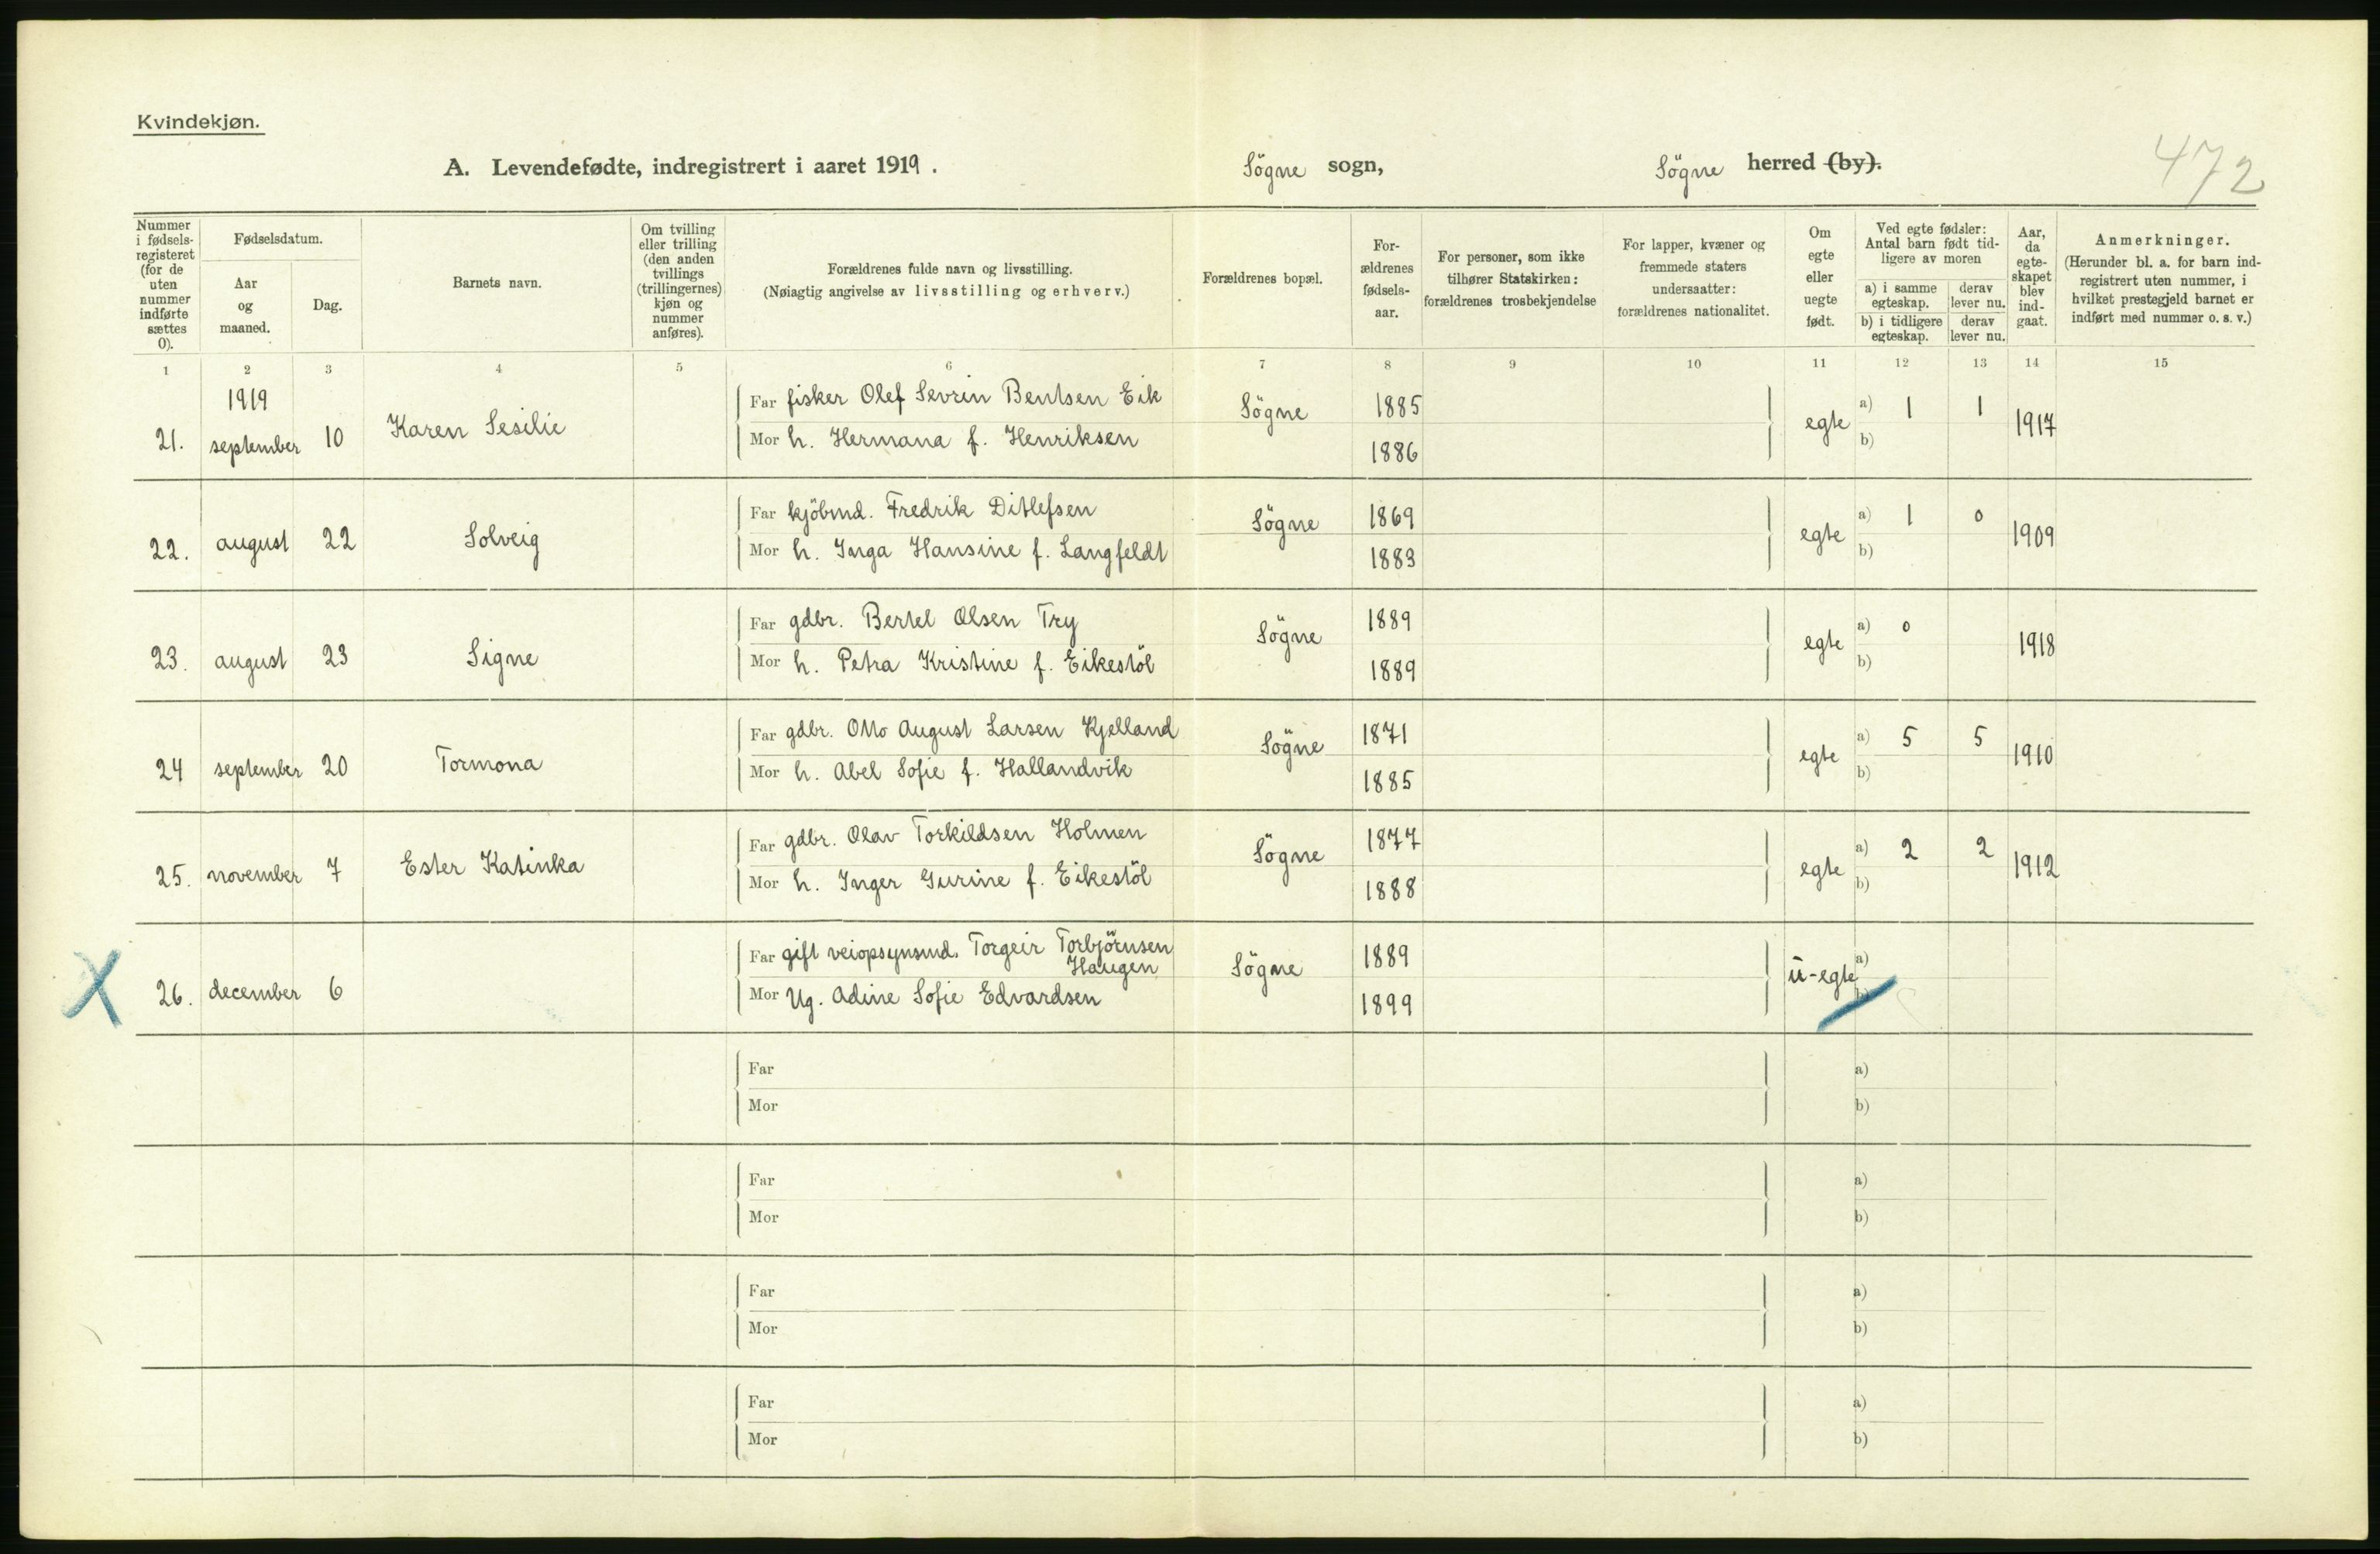 Kvindekjøn.
472
A. Levendefødte, indregistrert i aaret 1919. Sögne sogn, Sögne herred (by).
Nummer i fødsels-registeret (for de uten nummer indførte sættes 0).
Fødselsdatum.
Aar og maaned.
Dag.
Barnets navn.
Om tvilling eller trilling (den anden tvillings (trillingernes) kjøn og nummer anføres).
Forældrenes fulde navn og livsstilling.
(Nøiagtig angivelse av livsstilling og erhverv.)
Forældrenes bopæl.
For-ældrenes fødsels-aar.
For personer, som ikke tilhører Statskirken: forældrenes trosbekjendelse
For lapper, kvæner og fremmede staters undersaatter: forældrenes nationalitet.
Om egte eller uegte født.
Ved egte fødsler: Antal barn født tid-ligere av moren
a) i samme egteskap. derav lever nu.
b) i tidligere egteskap. derav lever nu.
Aar, da egte-skapet blev ind-gaat.
Anmerkninger.
(Herunder bl. a. for barn ind-registrert uten nummer, i hvilket prestegjeld barnet er indført med nummer o. s. v.)
1 2 3 4 5 6 7 8 9 10 11 12 13 14 15
1919
21. september 10 Karen Sesilie Far fisker Olef Sevrin Bentsen Eik Sögne 1885 egte a) 1 1 1917
Mor h. Hermana f. Henriksen 1886 b)
22. august 22 Solveig Far kjöbmd. Fredrik Ditlefsen Sögne 1869 egte a) 1 0 1909
Mor h. Inga Hansine f. Langfeldt 1883 b)
23. august 23 Signe Far gdbr. Bertel Olsen Try Sögne 1889 egte a) 0 1918
Mor h. Petra Kristine f. Eikestöl 1889 b)
24 september 20 Tormona Far gdbr. Otto August Larsen Kjelland Sögne 1871 egte a) 5 5 1910
Mor h. Abel Sofie f. Hallandvik 1885 b)
25. november 7 Ester Katinka Far gdbr. Olav Torkildsen Holmen Sögne 1877 egte a) 2 2 1912
Mor h. Inger Gurine f. Eikestöl 1888 b)
X 26. december 6 Far gift veiopsynsmd. Torgeir Torbjörnsen Haugen Sögne 1889 u-egte a)
Mor Ug. Adine Sofie Edvardsen 1899 b)
Far a)
Mor b)
Far a)
Mor b)
Far a)
Mor b)
Far a)
Mor b)